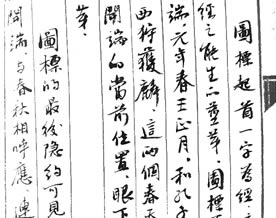 圖標起首一字為經
經之能生 圖標
端元年春王正月。和孔子
西狩獲麟 這兩個春天
開端的當前位置、眼下
圖標的最後隱約可見
開端、与春秋相呼應、連